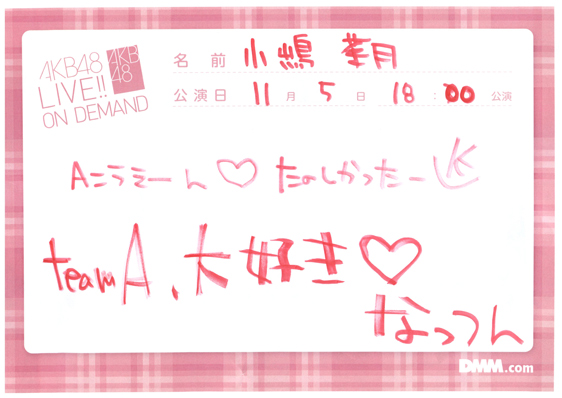 AKB48
LIVE!!
ON DEMAND
AKB
48
名前 小嶋 菜月
公演日 11 月 5 日 18 : 00 公演
Aこうえーん♡ たのしかったー
teamA、大好き♡
なっつん
DMM.com